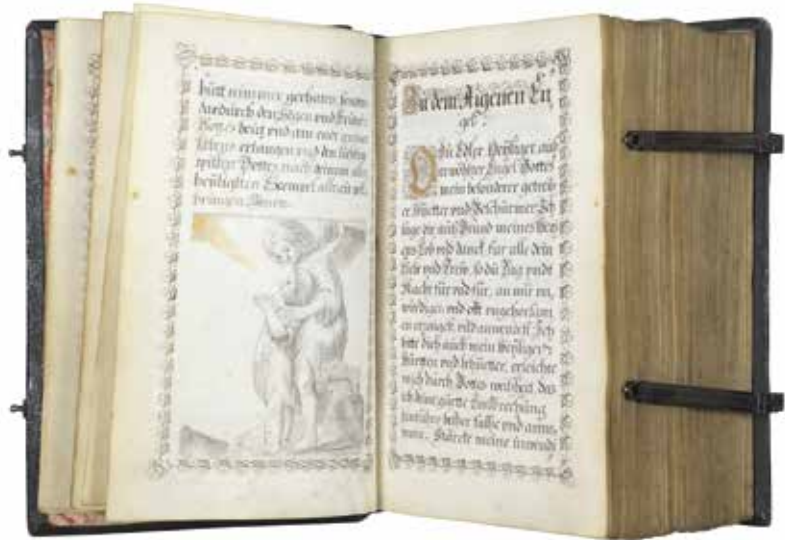 hütt nimmer gerhaten, sonn
durch den Segen und
Gottes beüt und
erlangen und den liebsten
willen Gottes nach deinem aller
heyligsten Exempel allzeit vol
bringen, Amen.
Zu dem Aigenen En
gel.
O du Edler Heyliger auß
erwöhlter Engel Gottes
mein besonderer getreü
er Hüetter und Beschürmer Ich
sage dir auß Grund meines Her
zens Lob und danck für alle dein
Lieb und Treü, so du Tag undt
Nacht für und für, an mir un,
würdigen und offt ungehorsam
en erzaigst, und anwendest. Ich
bitte dich auch mein Heyliger
Fürsten und Schüetter, erleichte
mich durch Gottes weißheit das
ich dine guette Einsprechung
hinfüro besser fasse und anne,
mme. Stärcke meine